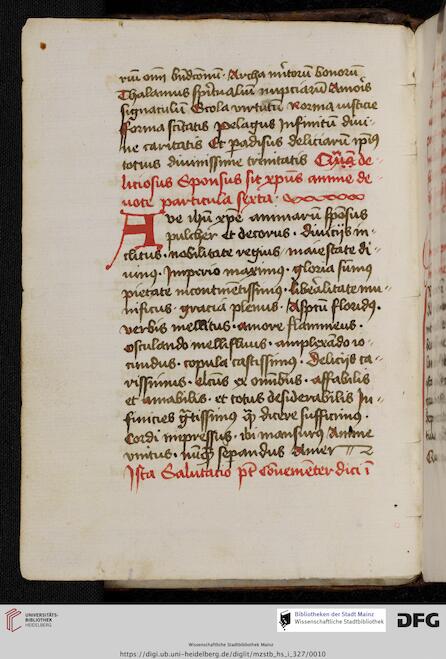 rū om̄i bn̄dcōnū. Archa m̄itorū bonorū
Thalamus sp̄ritualiū nupciarū Amoris
signaculū Scola virtutū Norma iusticie
fforma sc̄itatis Pelagus Infinitū diui-
ne caritatis Et paradisus deliciarū ip̄ius
totius diuinissime trinitatis de-
liciosus Sponsus sit xp̄us anime de-
uote particula sexta.
Ave ih̄u xp̄e animarū sponsus
pulcher et decorus. diuiciis in-
clitus. nobilitate regius. maiestate di-
uinus. Imperio maximus. gloria sūmus
pietate incontinētissimus. liberalitate mu-
nificus. gracia plenus. Asp̄tu floridus.
verbis mellitus. amore flammeus.
osculando mellifluus. amplexādo io-
cundus. copula castissimus. deliciis ca-
rissimus. ex omībus. affabilis
et amabilis. et totus desiderabilis In-
dicere sufficimus.
Cordi impressus. ibi mansurus Anime
vnitus. nūq̄ sepandus Amen
Ista Salutacio pt̄ Cōuenienter dici ī
UNIVERSITÄTS-
BIBLIOTHEK
HEIDELBERG
Bibliotheken der Stadt Mainz
Wissenschaftliche Stadtbibliothek
DFG
Wissenschaftliche Stadtbibliothek Mainz
https://digi.ub.uni-heidelberg.de/diglit/mzstb_hs_i_327/0010